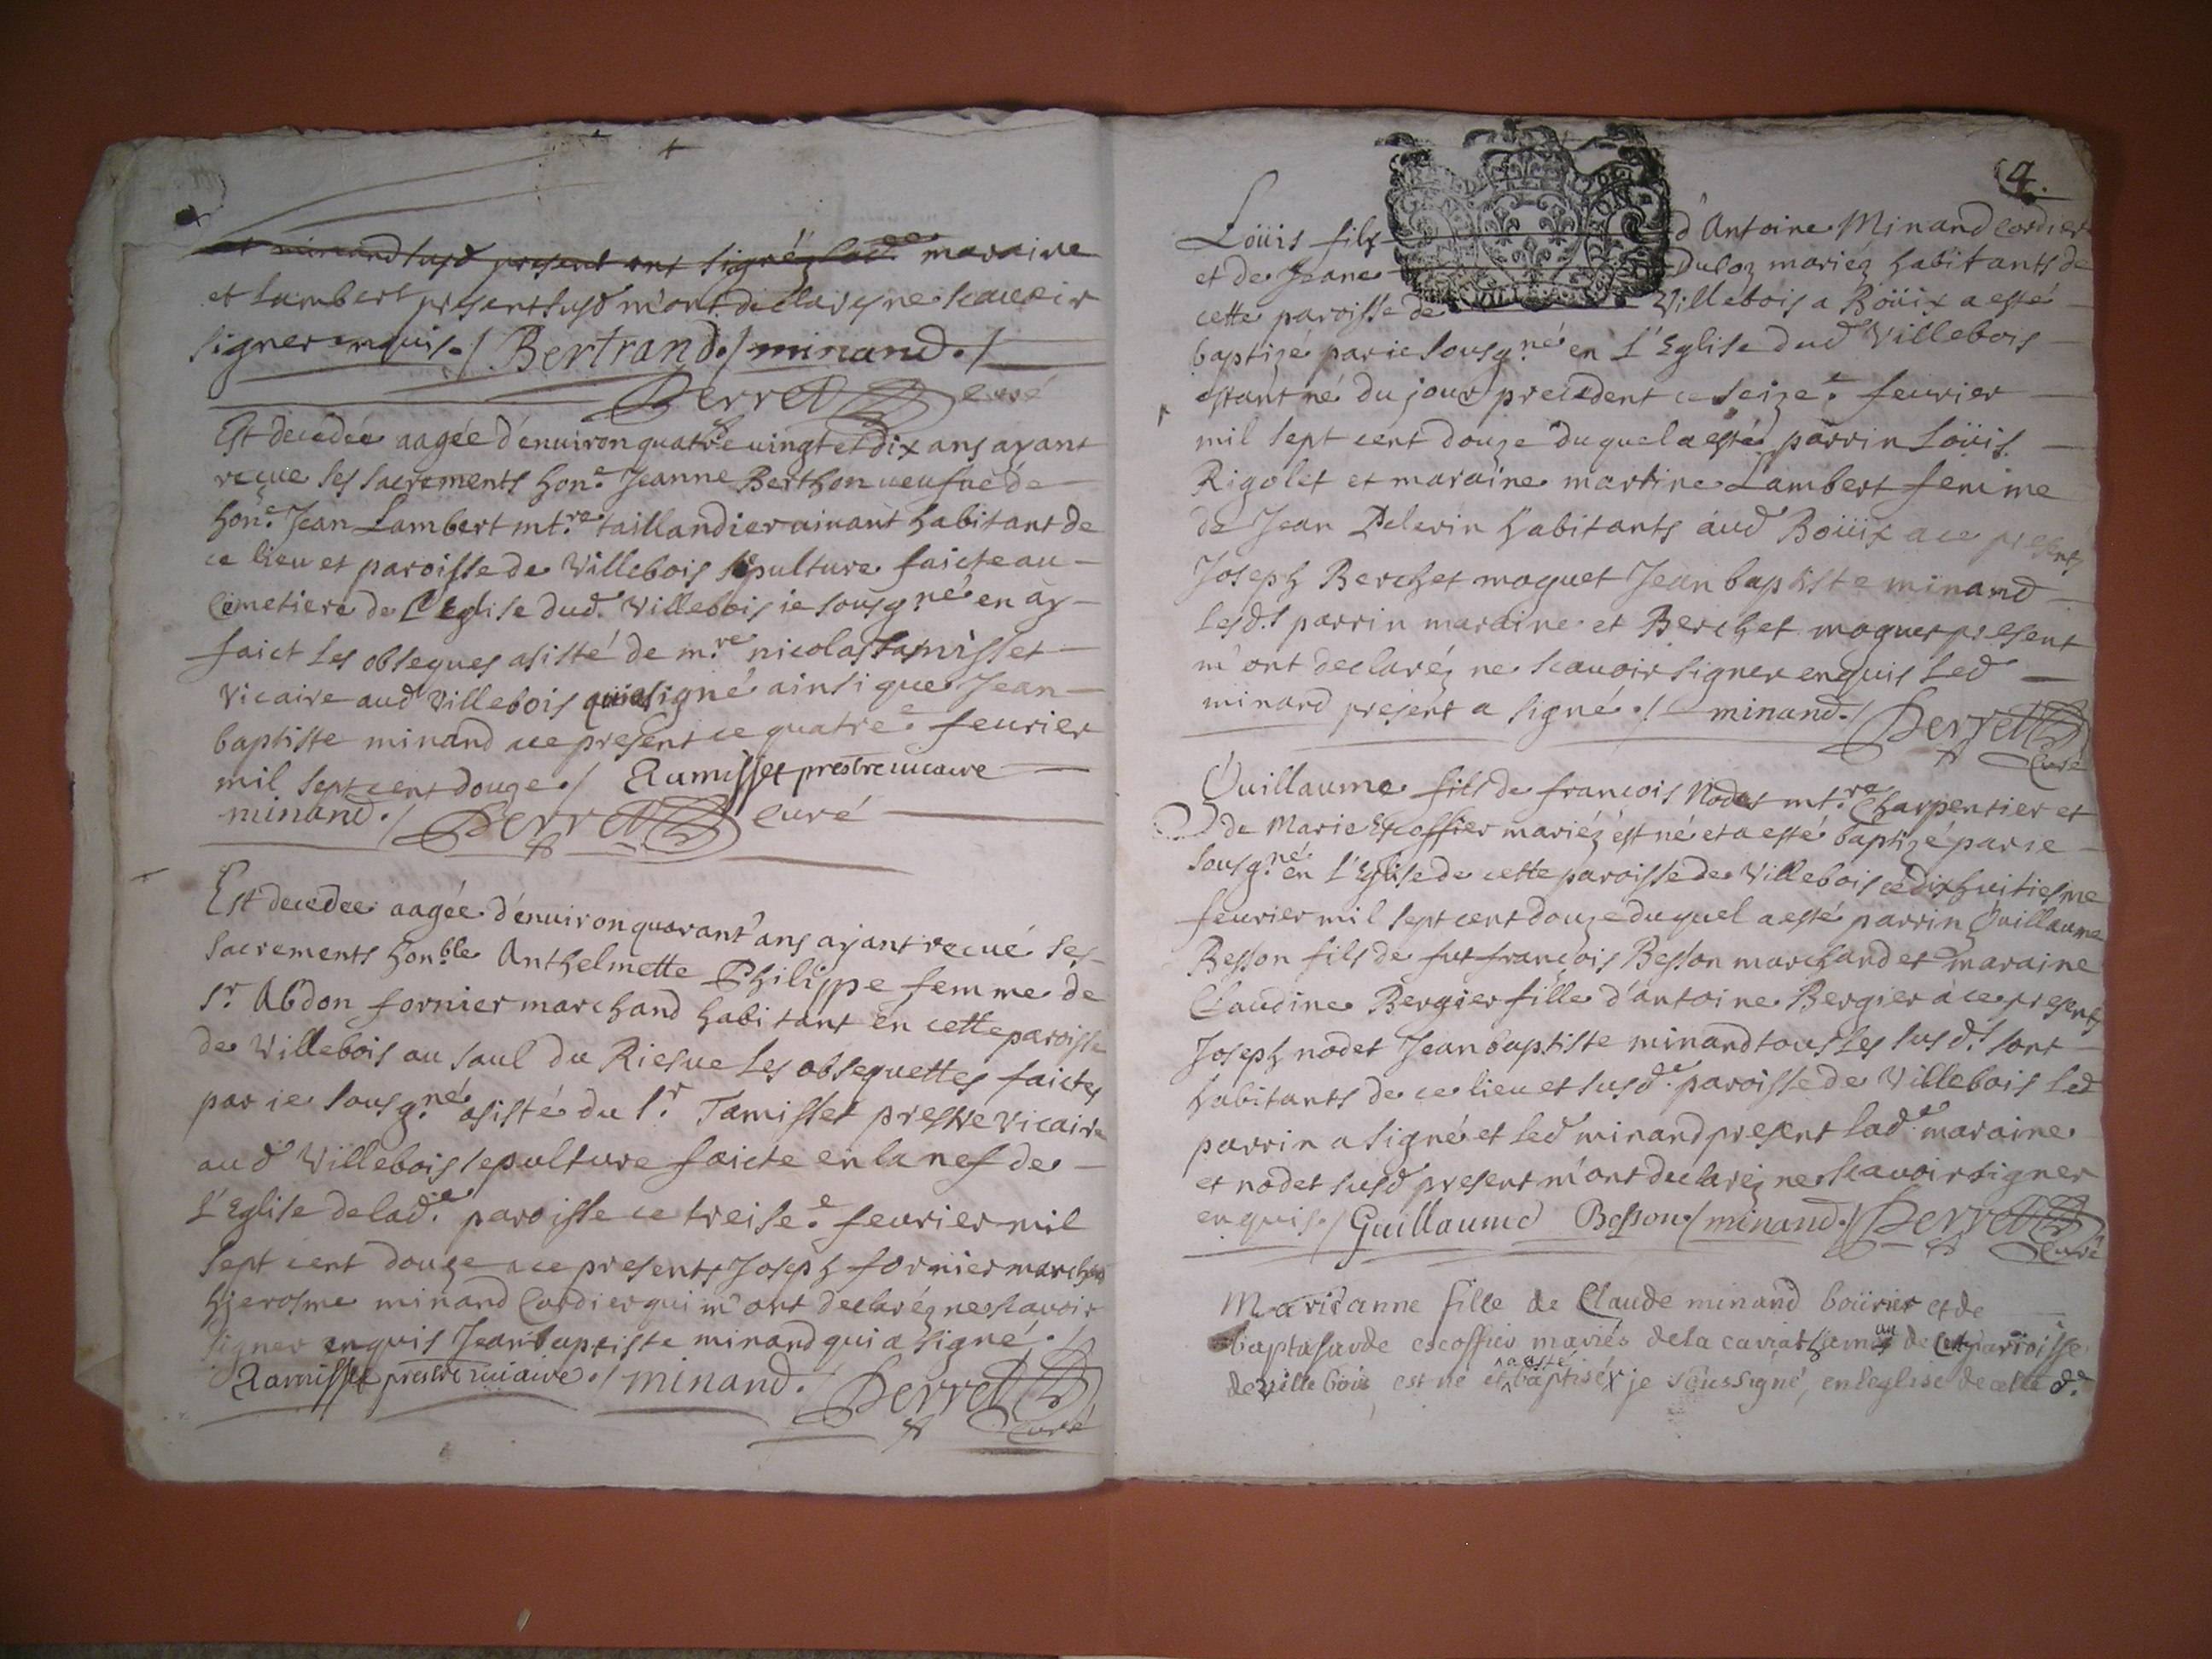 et minand susd present ont signéz lad.e maraine
et Lambert present susd m'ont declaré ne scauoir
signer enquis./ Bertrand./ minand./
Derret curé
Est decedée aagée d'enuiron quatre uingt et dix ans ayant
reçue ses sacrements hon.e Jeanne Berthon ueufue de
hon.e Jean Lambert mt.re taillandier uiuant habitant de
ce lieu et paroisse de Villebois sepulture faicte au
Cimetiere de L'Eglise dud. Villebois ie sousg.né en ay
faict les obseques asisté de m.re nicolas tamisset
Vicaire aud Villebois qui a signé ainsi que Jean
baptiste minand a ce present ce quatre.e feurier
mil sept cent douze./ Tamisset prestre uicaire
minand./ Derret curé
Est decedee aagée d'enuiron quarant' ans ayant reçue ses
sacrements hon.ble Anthelmette Philippe femme de
s.r Abdon fornier marchand habitant en cette paroisse
de Villebois au saul du Riesue les obsequettes faictes
par ie sousg.né asisté du s.r Tamisset prestre Vicaire
aud Villebois sepulture faicte en la nef de
L'Eglise de lad.e paroisse ce treise.e feurier mil
sept cent douze a ce presents Joseph fornier marchand
hierosme minand Cordier qui m'ont declaréz ne scauoir
signer enquis Jean baptiste minand qui a signé./
Tamisset prestre uicaire./ minand./ Derret
Curé
4.
Loüis fils d'Antoine Minand Cordier
et de Jeane Duloz mariéz habitants de
cette paroisse de Villebois a Boüix a esté
baptizé par ie sousg.né en L'Eglise dud Villebois
estant né du jour precedent ce seize.e feurier
mil sept cent douze duquel a esté parrin Loüis
Rigolet et maraine martine Lambert femme
de Jean Pelerin habitants aud Boüix a ce presents
Joseph Berchet moquet Jean baptiste minand
lesd.s parrin maraine et Berchet moquet present
m'ont declaréz ne scauoir signer enquis led
minand present a signé./ minand./ Derret
Curé
Guillaume fils de francois Nodet mt.re Charpentier et
de Marie Escoffier mariéz est né et a esté baptizé par ie
sousg.né en L'Eglise de cette paroisse de Villebois ce dixhuitiesme
feurier mil sept cent douze duquel a esté parrin Guillaume
Besson fils de fut françois Besson marchand et maraine
Claudine Bergier fille d'antoine Bergier a ce presents
Joseph nodet Jean baptiste minand tous les susd.s sont
habitants de ce lieu et susd.e paroisse de Villebois led
parrin a signé et led minand present lad.e maraine
et nodet susd present m'ont declaréz ne scauoir signer
enquis./ Guillaume Besson./ minand./ Derret
Curé
Marie anne fille de Claude minand boürier et de
baptasarde escoffier mariés de la de cet parioisse
de ville bois est né et a asté baptisér je soussigné, en leglise de cette d.e